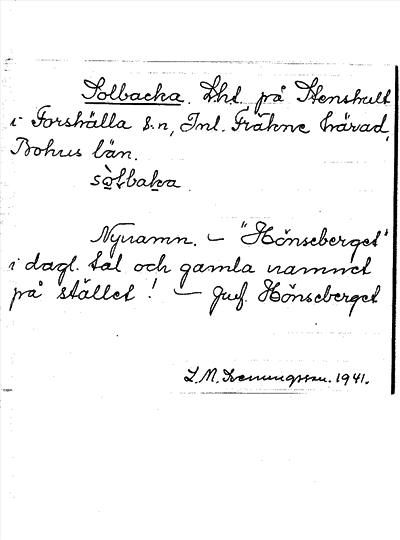 Solbacka. Lht. på Stenshult
i Forshälla s:n, Inl. Fräkne härad,
Bohus län.
sò̱lbaka
Nynamn. – "Hönseberget"
i dagl. tal och gamla namnet
på stället! – Jmf. Hönseberget
L. M. Svenungsson. 1941.